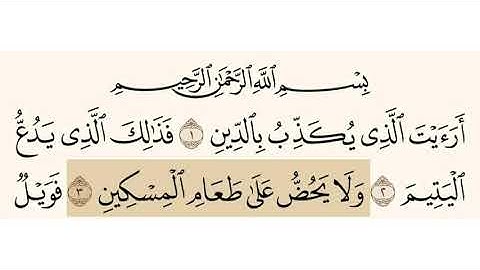 بِسْمِ اللَّهِ الرَّحْمَٰنِ الرَّحِيمِ
أَرَءَيْتَ الَّذِي يُكَذِّبُ بِالدِّينِ ١ فَذَٰلِكَ الَّذِي يَدُعُّ
الْيَتِيمَ ٢ وَلَا يَحُضُّ عَلَىٰ طَعَامِ الْمِسْكِينِ ٣ فَوَيْلٌ